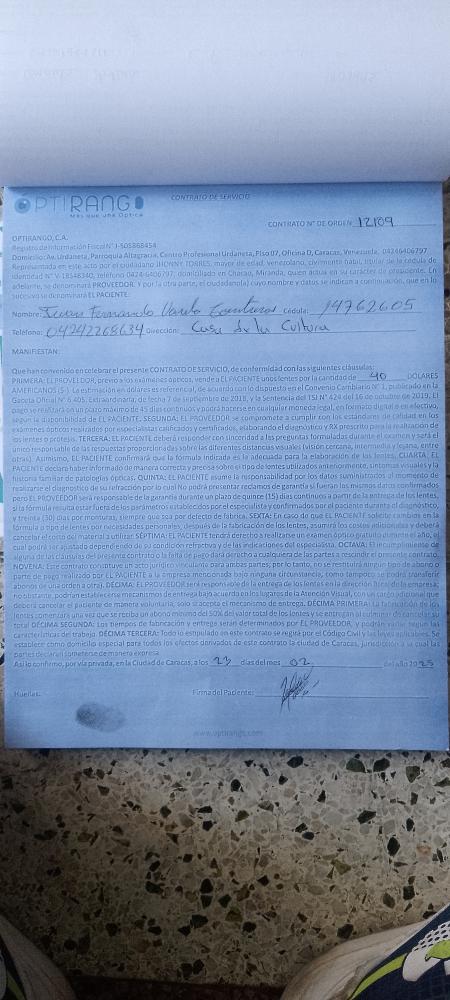 OPTIRANGO
Más que una Óptica
CONTRATO DE SERVICIO
CONTRATO N° DE ORDEN 12109
OPTIRANGO, C.A.
Registro de Información Fiscal N° J-505868454
Domicilio: Av. Urdaneta, Parroquia Altagracia, Centro Profesional Urdaneta, Piso 07, Oficina D, Caracas, Venezuela. 04246406797
Representada en este acto por el ciudadano JHONNY TORRES, mayor de edad, venezolano, civilmente hábil, titular de la cédula de
identidad N° V-18548340, teléfono 0424-6406797; domiciliado en Charao, Miranda, quien actua en su carácter de presidente. En
adelante, se denominará PROVEEDOR. Y por la otra parte, el ciudadano(a) cuyo nombre y datos se indican a continuación, que en lo
sucesivo se denominará EL PACIENTE:
Nombre: Juan Fernando Varela Contreras Cédula: 14762605
Teléfono: 04242268634 Dirección: Casa de la Cultura
MANIFIESTAN:
Que han convenido en celebrar el presente CONTRATO DE SERVICIO, de conformidad con las siguientes cláusulas:
PRIMERA: EL PROVEEDOR, previo a los exámenes ópticos, vende a EL PACIENTE unos lentes por la cantidad de 40 DÓLARES
AMERICANOS ($-). La estimación en dólares es referencial, de acuerdo con lo dispuesto en el Convenio Cambiario N° 1, publicado en la
Gaceta Oficial N° 6.405, Extraordinaria, de fecha 7 de septiembre de 2018, y la Sentencia del TSJ N° 424 del 16 de octubre de 2019. El
pago se realizará en un plazo máximo de 45 días continuos y podrá hacerse en cualquier moneda legal, en formato digital o en efectivo,
según la disponibilidad de EL PACIENTE. SEGUNDA: EL PROVEEDOR se compromete a cumplir con los estándares de calidad en los
exámenes ópticos realizados por especialistas calificados y certificados, elaborando el diagnóstico y RX prescrito para la realización de
los lentes o prótesis. TERCERA: EL PACIENTE deberá responder con sinceridad a las preguntas formuladas durante el examen y será el
único responsable de las respuestas proporcionadas sobre las diferentes distancias visuales (visión cercana, intermedia y lejana, entre
otras). Asimismo, EL PACIENTE confirmará que la fórmula indicada es la adecuada para la elaboración de los lentes. CUARTA: EL
PACIENTE declara haber informado de manera correcta y precisa sobre el tipo de lentes utilizados anteriormente, síntomas visuales y la
historia familiar de patologías ópticas. QUINTA: EL PACIENTE asume la responsabilidad por los datos suministrados al momento de
realizarse el diagnóstico de su refracción por lo cual no podrá presentar reclamos de garantía si fueran los mismos datos confirmados
pero EL PROVEEDOR será responsable de la garantía durante un plazo de quince (15) días continuos a partir de la entrega de los lentes,
si la fórmula resulta estar fuera de los parámetros establecidos por el especialista y confirmados por el paciente durante el diagnóstico,
y treinta (30) días por monturas, siempre que sea por defecto de fabrica. SEXTA: En caso de que EL PACIENTE solicite cambios en la
fórmula o tipo de lentes por necesidades personales, después de la fabricación de los lentes, asumirá los costos adicionales y deberá
cancelar el costo del material a utilizar. SÉPTIMA: EL PACIENTE tendrá derecho a realizarse un examen óptico gratuito durante el año, el
cual podrá ser ajustado dependiendo de su condición refractiva y de las indicaciones del especialista. OCTAVA: El incumplimiento de
alguna de las cláusulas del presente contrato o la falta de pago dará derecho a cualquiera de las partes a rescindir el presente contrato.
NOVENA: Este contrato constituye un acto jurídico vinculante para ambas partes; por lo tanto, no se restituirá ningún tipo de abono o
parte de pago realizado por EL PACIENTE a la empresa mencionada bajo ninguna circunstancia, como tampoco se podrá transferir
abonos de una orden a otra). DÉCIMA: EL PROVEEDOR será responsable de la entrega de los lentes en la dirección fiscal de la empresa;
no obstante, podrían establecerse mecanismos de entrega bajo acuerdo en los lugares de la Atención Visual, con un cargo adicional que
deberá cancelar el paciente de manera voluntaria, solo si acepta el mecanismo de entrega. DÉCIMA PRIMERA: La fabricación de los
lentes comenzará una vez que se reciba un abono mínimo del 50% del valor total de los lentes y se entregará al culminar de cancelar su
total. DÉCIMA SEGUNDA: Los tiempos de fabricación y entrega serán determinados por EL PROVEEDOR, y podrán variar según las
características del trabajo. DÉCIMA TERCERA: Todo lo estipulado en este contrato se regirá por el Código Civil y las leyes aplicables. Se
establece como domicilio especial para todos los efectos derivados de este contrato la ciudad de Caracas, jurisdicción a la cual las
partes declaran someterse de manera expresa.
Así lo confirmo, por vía privada, en la Ciudad de Caracas, a los 23 días del mes 02 del año 2025
Huellas:
Firma del Paciente:
www.optirango.com